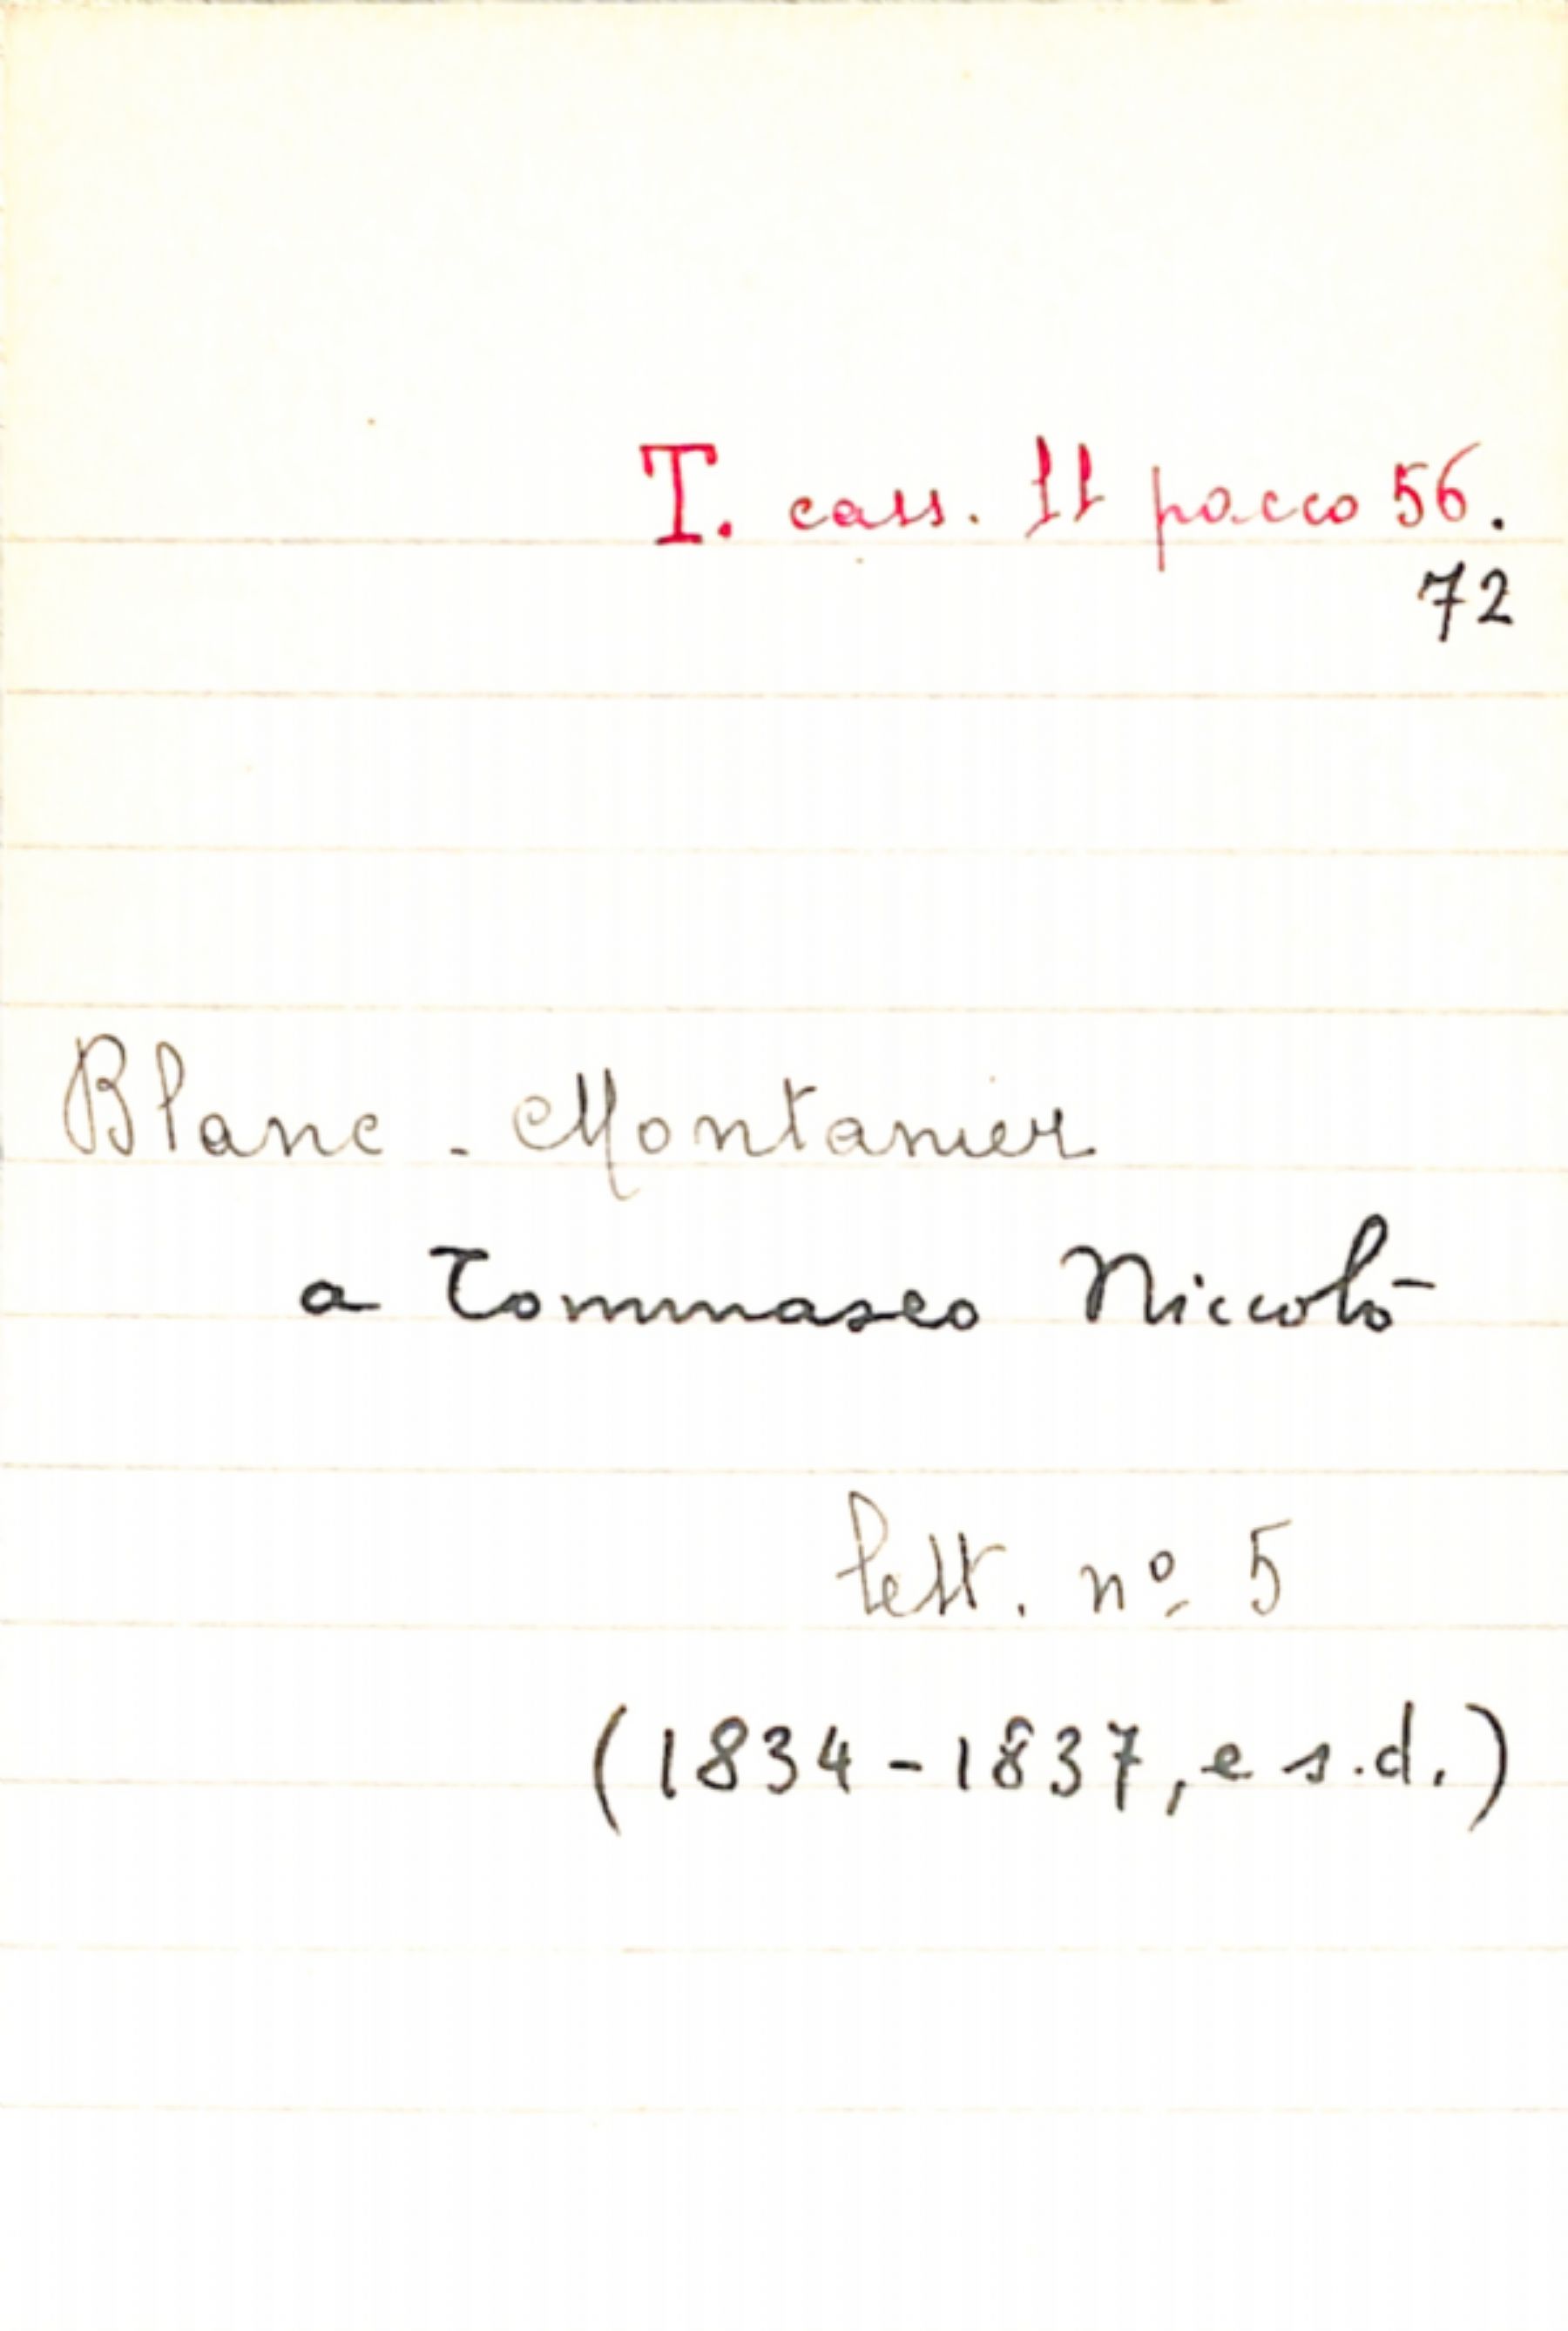 T. cass. 11 pacco 56.
72
Blanc - Montanier
a Tommaseo Niccolò
lett. nº 5
(1834-1837, e s.d.)